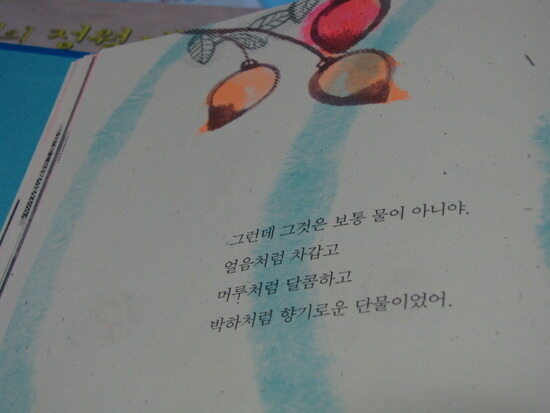 그런데 그것은 보통 물이 아니야.
얼음처럼 차갑고
머루처럼 달콤하고
박하처럼 향기로운 단물이었어.